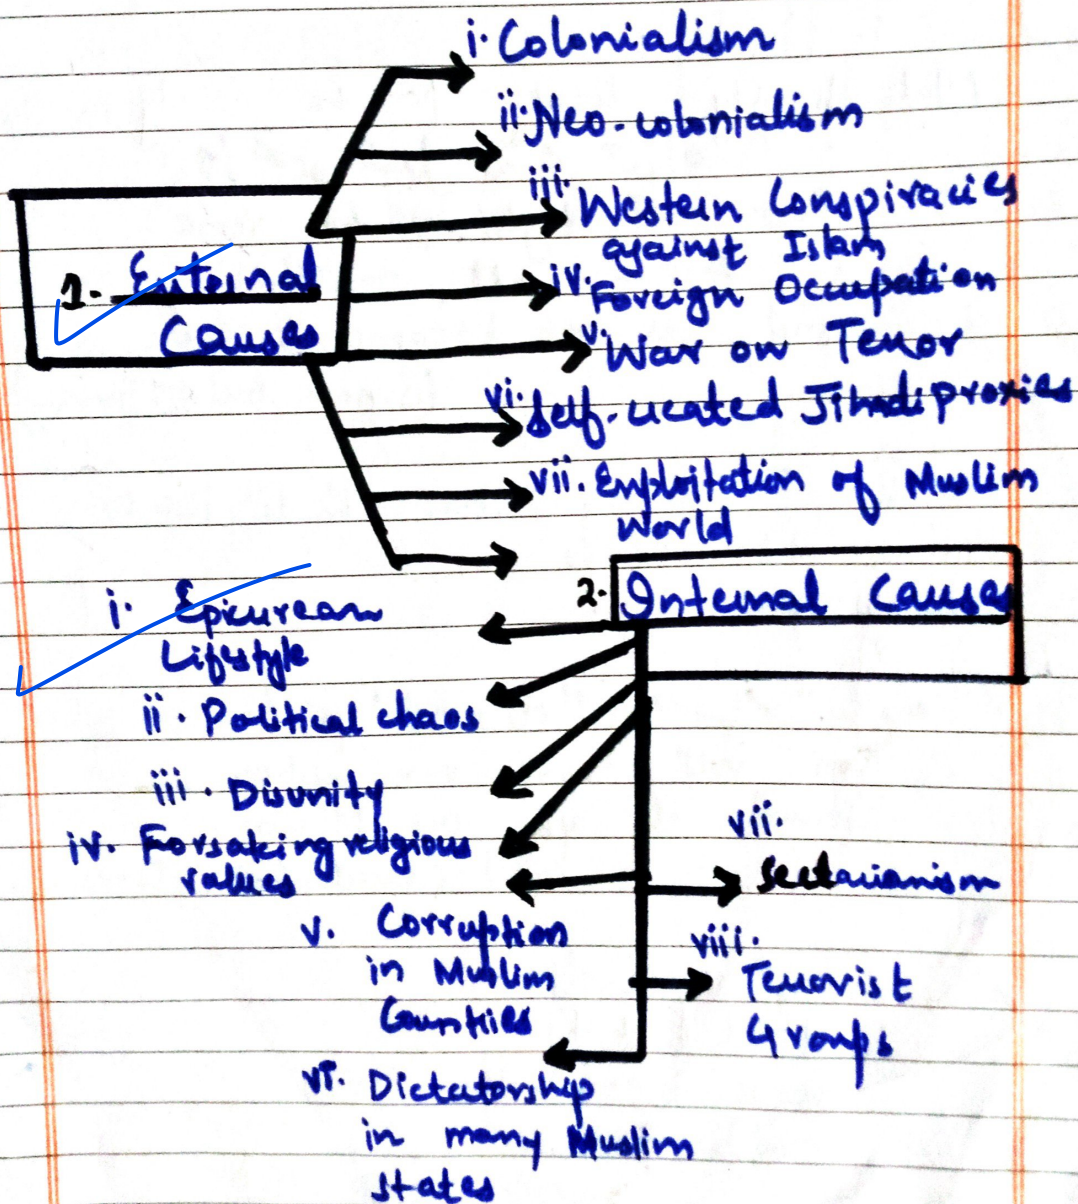 i. Colonialism
ii. Neo-colonialism
iii. Western Conspiracies
against Islam
1. External
Causes
iv. Foreign Occupation
v. War on Terror
vi. Self-created Jihadi proxies
vii. Exploitation of Muslim
World
2. Internal Causes
i. Epicurean
Lifestyle
ii. Political chaos
iii. Disunity
iv. Forsaking religious
values
v. Corruption
in Muslim
Countries
vi. Dictatorship
in many Muslim
states
vii.
Sectarianism
viii.
Terrorist
Groups